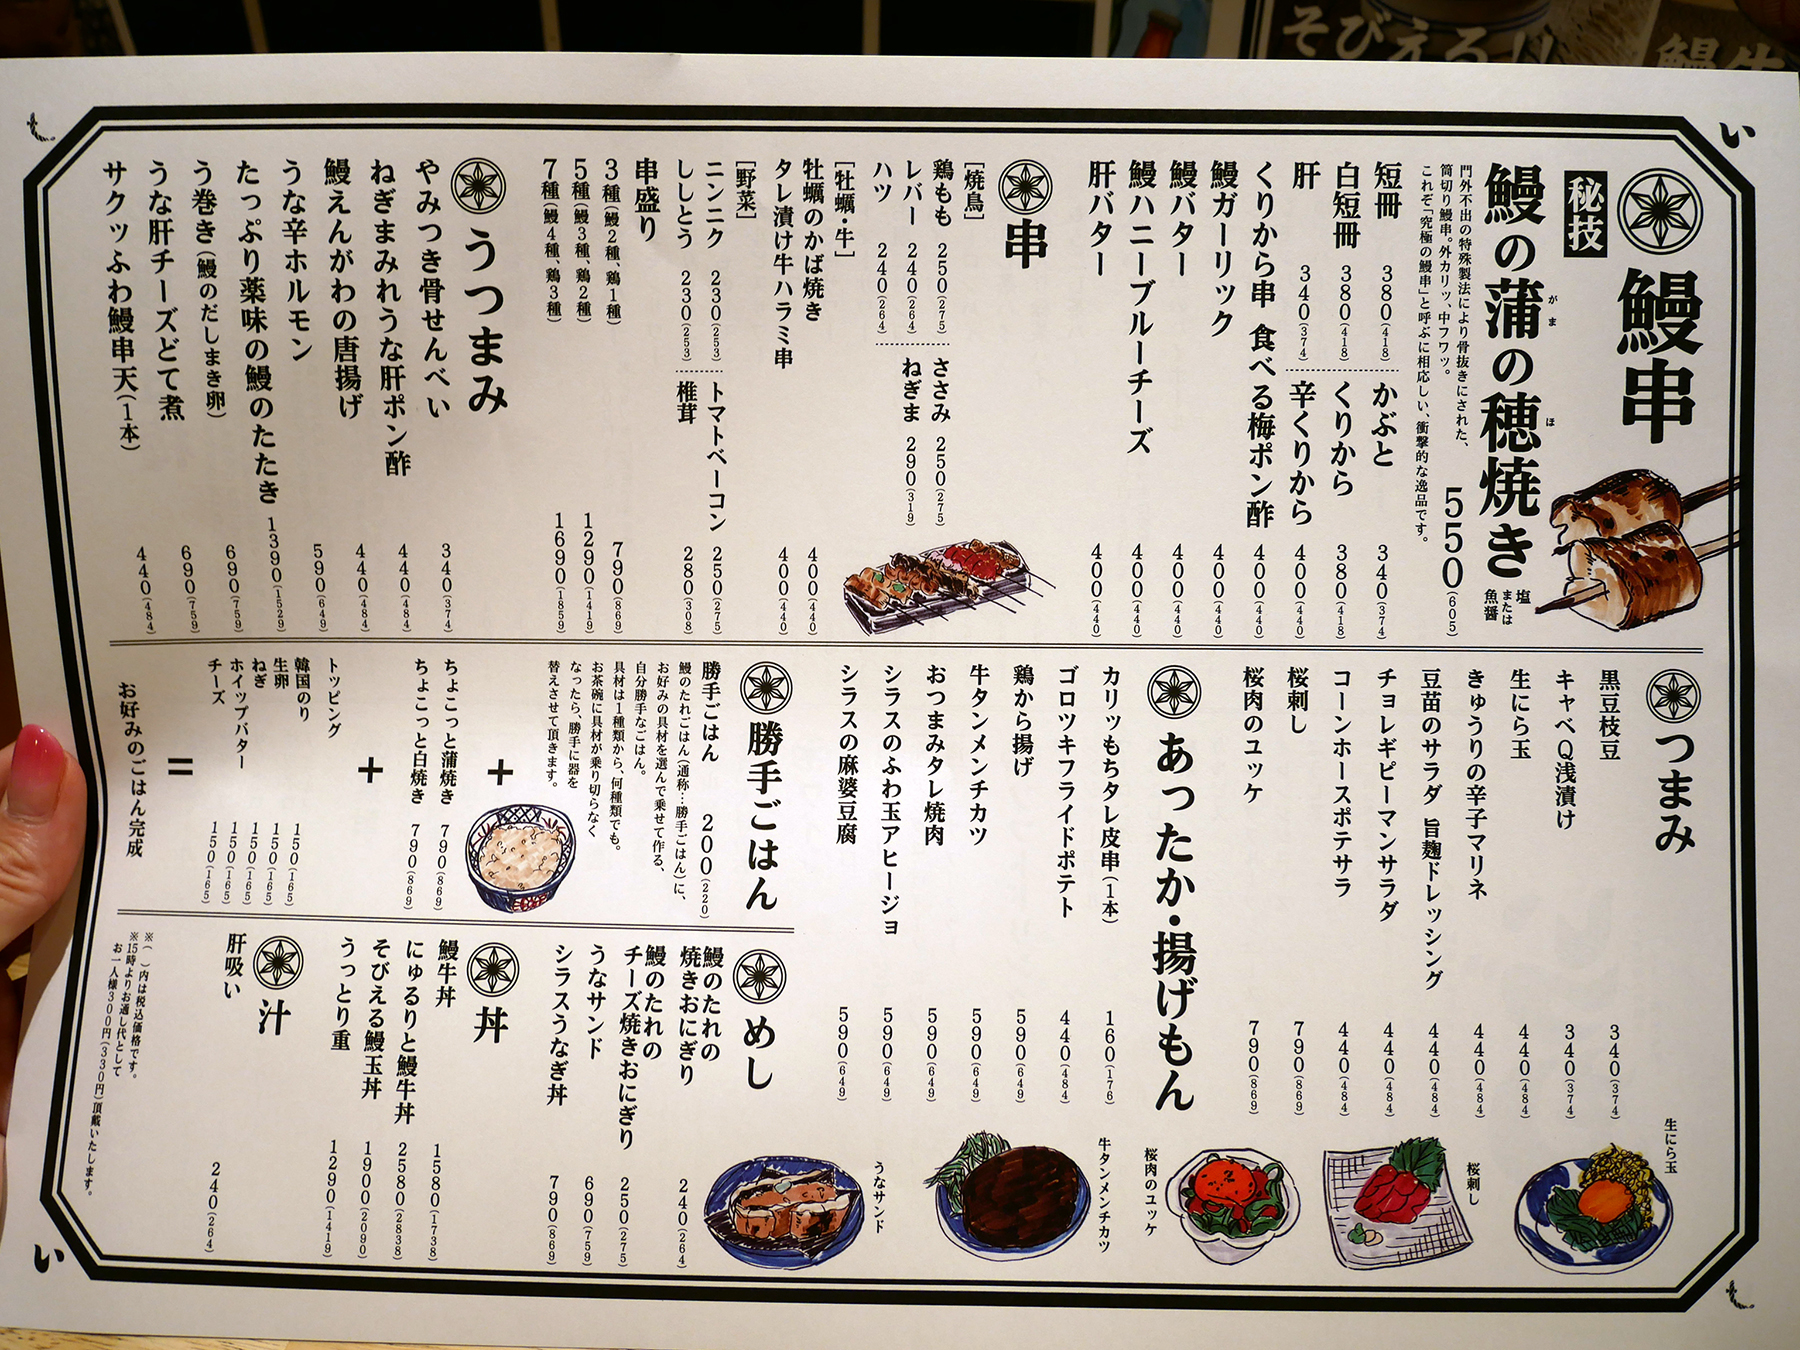 そびえる!!
鰻牛
い
鰻串
秘技
鰻の蒲の穂焼き
がま
ほ
塩
または
魚醤
門外不出の特殊製法により骨抜きにされた、
筒切り鰻串。外カリッ、中フワッ。
これぞ「究極の鰻串」と呼ぶに相応しい、衝撃的な逸品です。
550(605)
短冊 380(418)
かぶと 340(374)
白短冊 380(418)
くりから 380(418)
肝 340(374)
辛くりから 400(440)
くりから串 食べる梅ポン酢 400(440)
鰻ガーリック 400(440)
鰻バター 400(440)
鰻ハニーブルーチーズ 400(440)
肝バター 400(440)
串
[焼鳥]
鶏もも 250(275)
ささみ 250(275)
レバー 240(264)
ねぎま 290(319)
ハツ 240(264)
[牡蠣・牛]
牡蠣のかば焼き 400(440)
タレ漬け牛ハラミ串 400(440)
[野菜]
ニンニク 230(253)
トマトベーコン 250(275)
ししとう 230(253)
椎茸 280(308)
串盛り
3種(鰻2種、鶏1種) 790(869)
5種(鰻3種、鶏2種) 1290(1419)
7種(鰻4種、鶏3種) 1690(1859)
うつまみ
やみつき骨せんべい 340(374)
ねぎまみれうな肝ポン酢 440(484)
鰻えんがわの唐揚げ 440(484)
うな辛ホルモン 590(649)
たっぷり薬味の鰻のたたき 1390(1529)
う巻き(鰻のだしまき卵) 690(759)
うな肝チーズどて煮 690(759)
サクッふわ鰻串天(1本) 440(484)
つまみ
黒豆枝豆 340(374)
キャベQ浅漬け 340(374)
生にら玉 440(484)
きゅうりの辛子マリネ 440(484)
豆苗のサラダ 旨麹ドレッシング 440(484)
チョレギピーマンサラダ 440(484)
コーンホースポテサラ 440(484)
桜刺し 790(869)
桜肉のユッケ 790(869)
あったか・揚げもん
カリッもちタレ皮串(1本) 160(176)
ゴロツキフライドポテト 440(484)
鶏から揚げ 590(649)
牛タンメンチカツ 590(649)
おつまみタレ焼肉 590(649)
シラスのふわ玉アヒージョ 590(649)
シラスの麻婆豆腐 590(649)
生にら玉
桜刺し
桜肉のユッケ
牛タンメンチカツ
うなサンド
勝手ごはん
勝手ごはん 200(220)
鰻のたれごはん(通称…勝手ごはん)に、
お好みの具材を選んで乗せて作る、
自分勝手なごはん。
具材は1種類から、何種類でも。
お茶碗に具材が乗り切らなく
なったら、勝手に器を
替えさせて頂きます。
+
ちょこっと蒲焼き 790(869)
ちょこっと白焼き 790(869)
+
トッピング
韓国のり 150(165)
生卵 150(165)
ねぎ 150(165)
ホイップバター 150(165)
チーズ 150(165)
=
お好みのごはん完成
めし
鰻のたれの
焼きおにぎり 240(264)
鰻のたれの
チーズ焼きおにぎり 250(275)
うなサンド 690(759)
シラスうなぎ丼 790(869)
丼
鰻牛丼 1580(1738)
にゅるりと鰻牛丼 2580(2838)
そびえる鰻玉丼 1900(2090)
うっとり重 1290(1419)
汁
肝吸い 240(264)
※( )内は税込価格です。
※15時よりお通し代として
お一人様300円(330円)頂戴いたします。
い